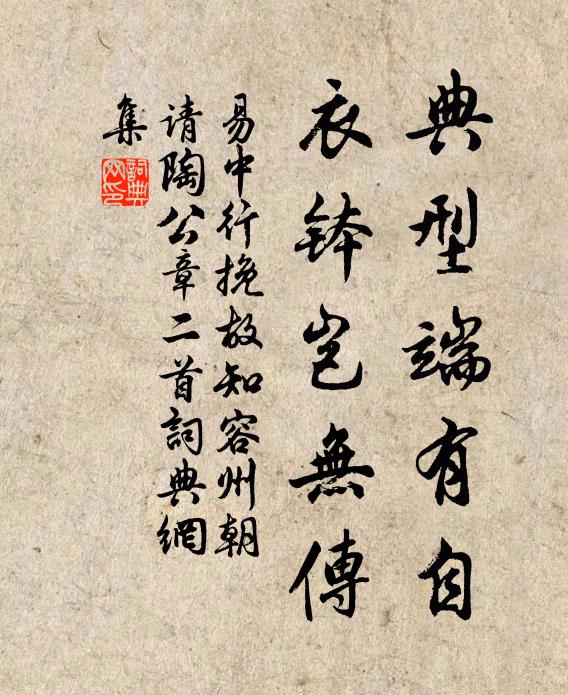 典型端有自
衣鉢岂無傳
易中行挽故知容州朝
请陶公章二首詞典網
集
詞典
网印